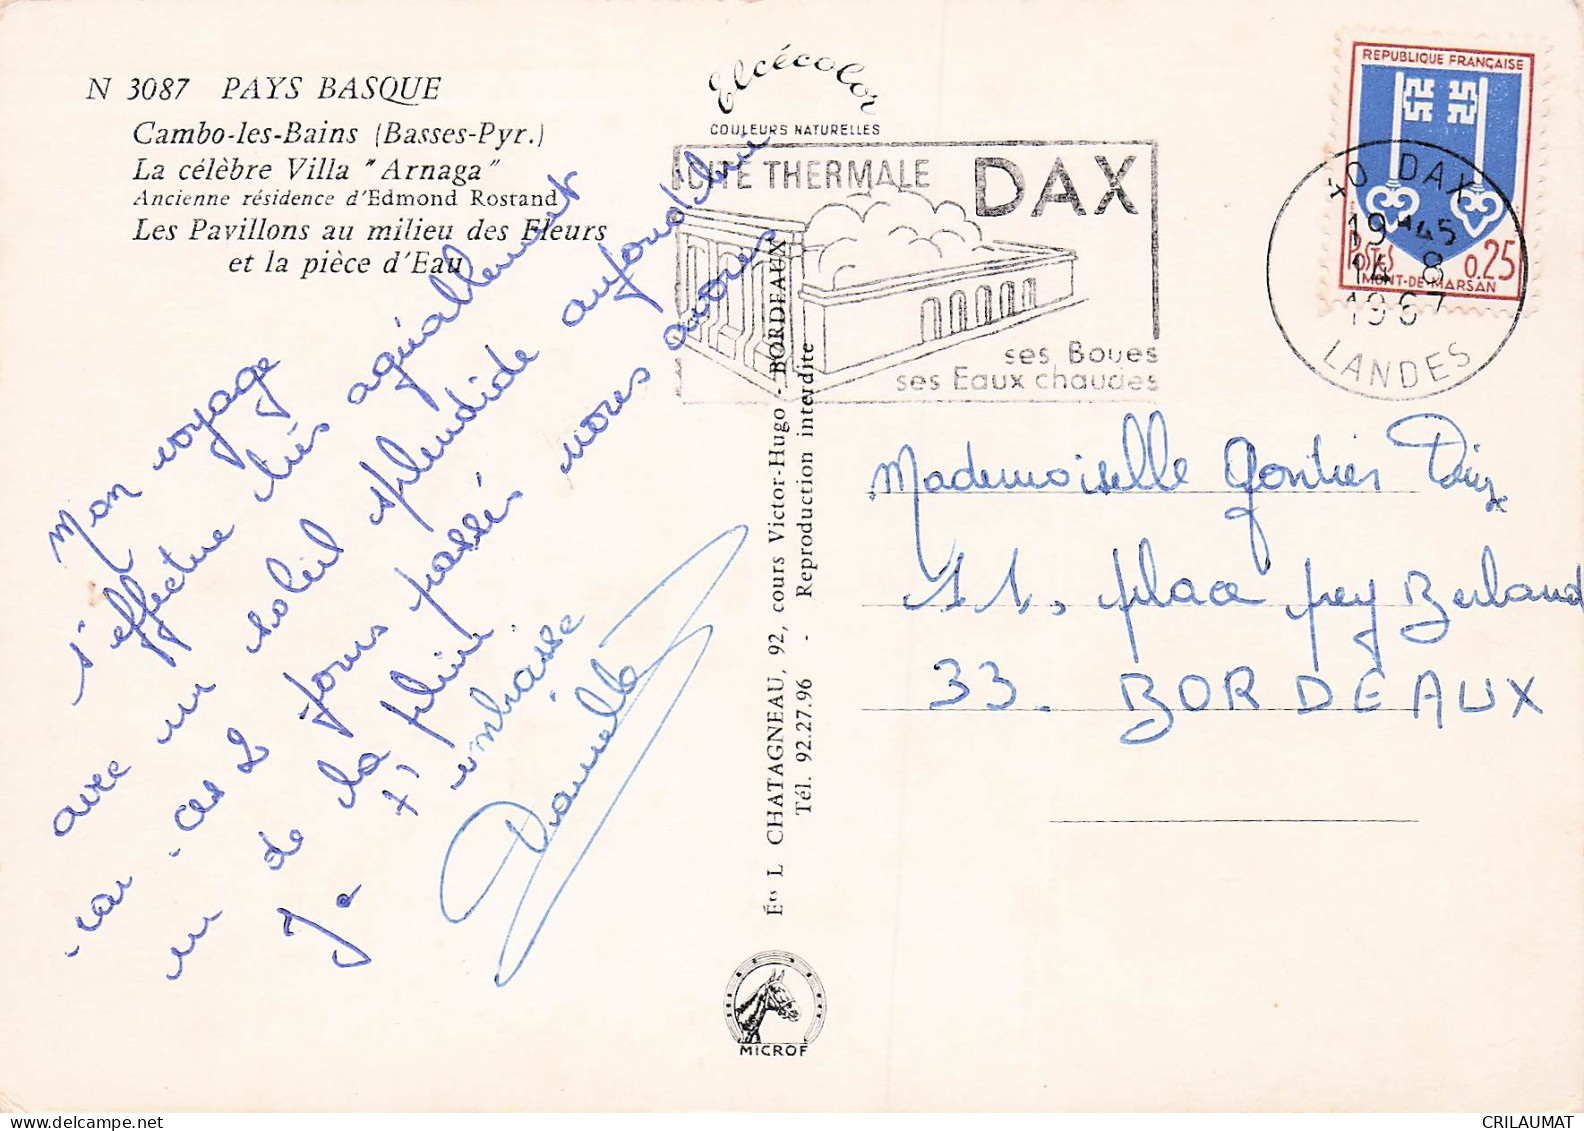 N 3087 PAYS BASQUE
Cambo-les-Bains (Basses-Pyr.)
La célèbre Villa "Arnaga"
Ancienne résidence d'Edmond Rostand
Les Pavillons au milieu des Fleurs
et la pièce d'Eau
Mon voyage
s'effectue très agréablement
avec un soleil splendide aujourd'hui
car ces 2 jours passés nous avons
eu de la pluie.
Je t'embrasse
Danielle
Elcécolor
COULEURS NATURELLES
Éts L CHATAGNEAU, 92, cours Victor-Hugo - BORDEAUX
Tél. 92.27.96 - Reproduction interdite
MICROF
CITE THERMALE DAX
ses Boues
ses Eaux chaudes
REPUBLIQUE FRANÇAISE
POSTES 0.25
MONT-DE-MARSAN
40 DAX
19 H 45
14 8
1967
LANDES
Mademoiselle Gontier
11, place pey Berland
33. BORDEAUX
CRILAUMAT